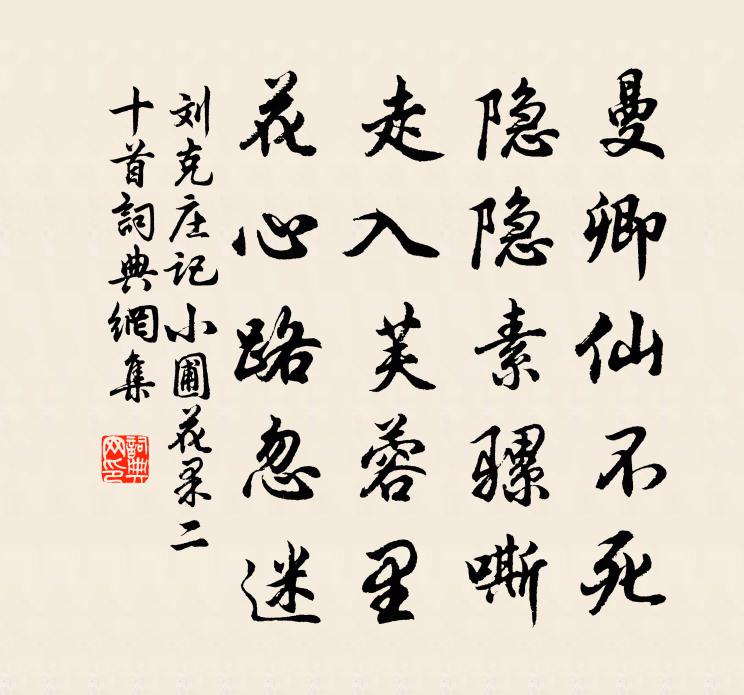 曼卿仙不死
隐隐素骡嘶
走入芙蓉里
花心路忽迷
刘克庄记小圃花果二
十首詞典網集
詞典网印